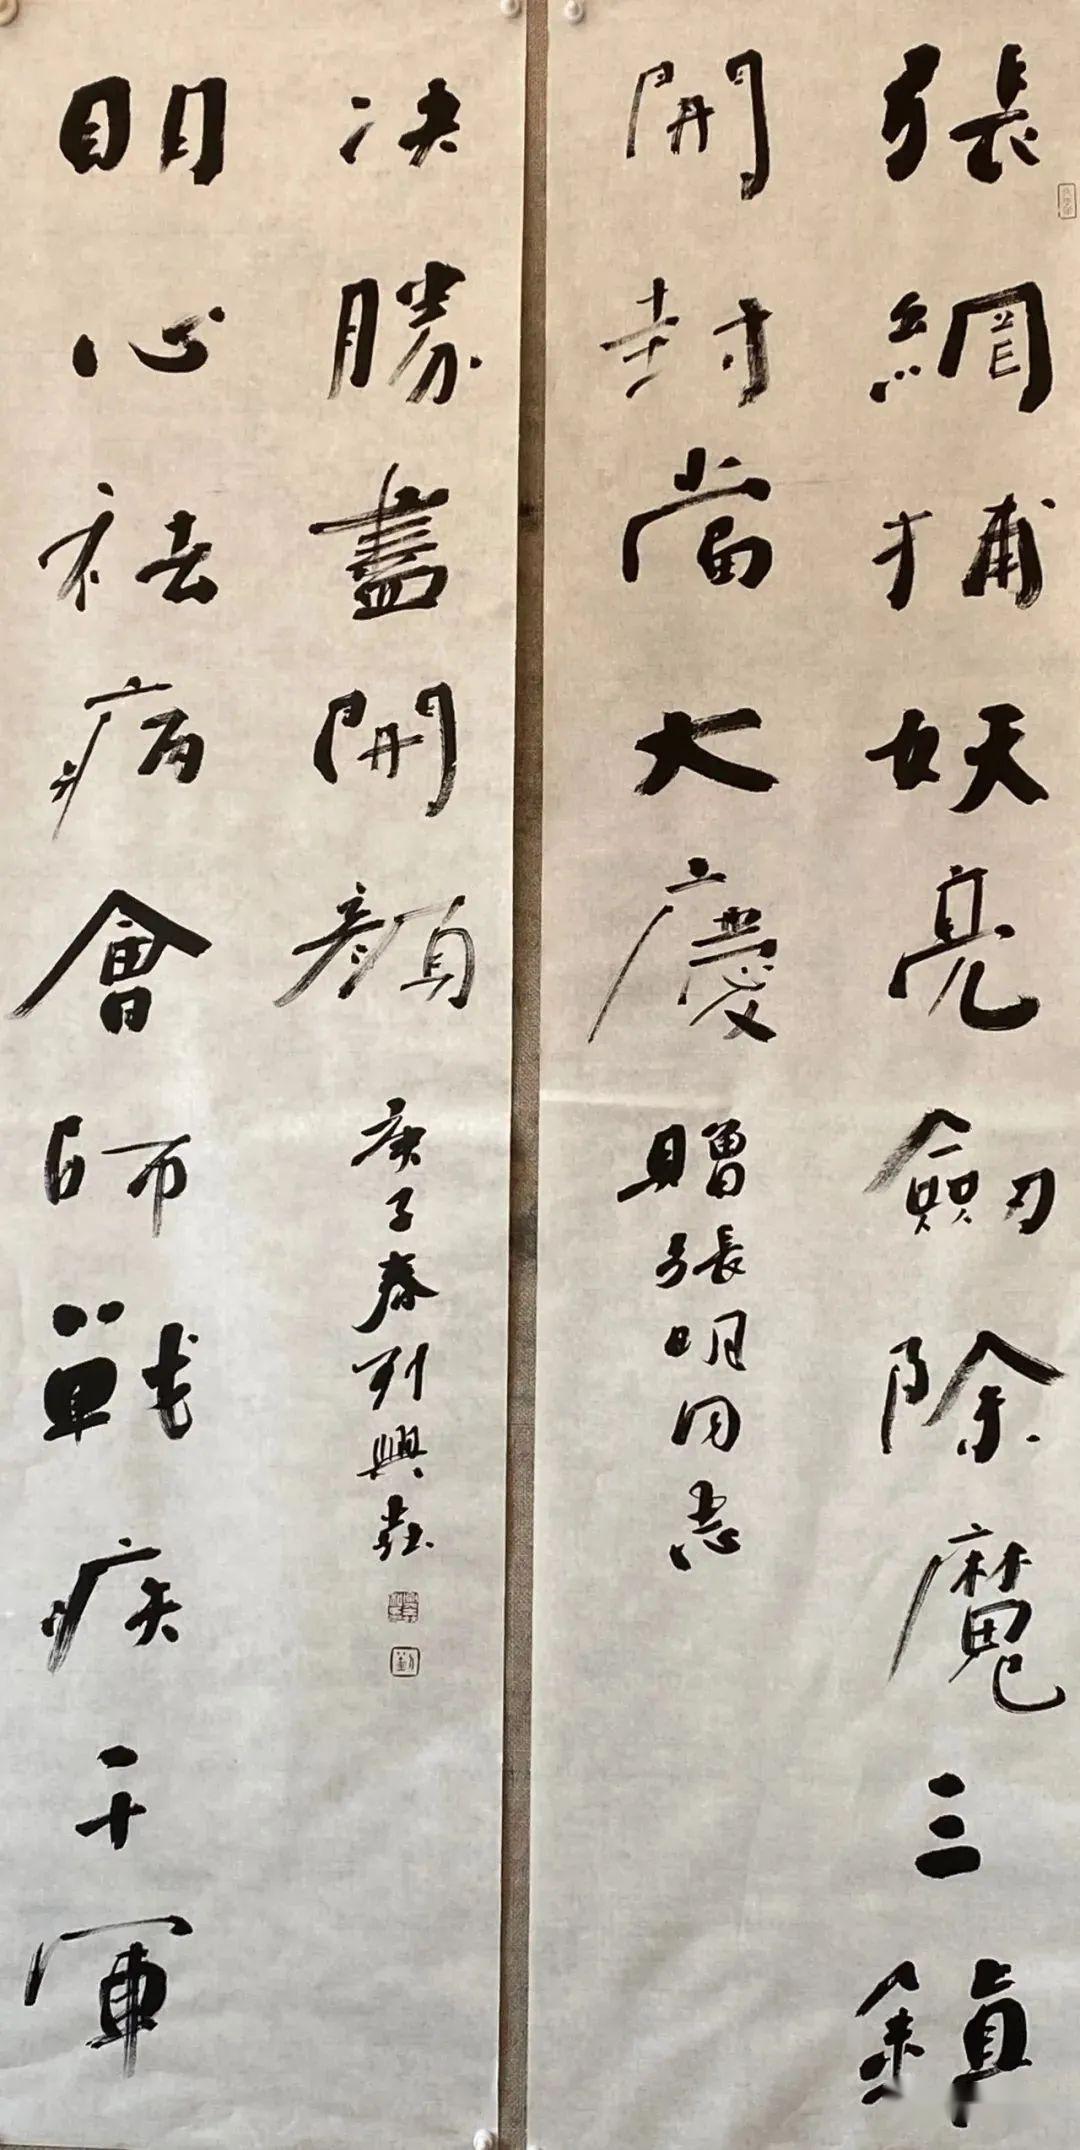 張網捕妖亮劔除魔三鎮
開封當大慶
贈張明同志
明心祛病會師戰疾千軍
决勝盡開顏
庚子春興